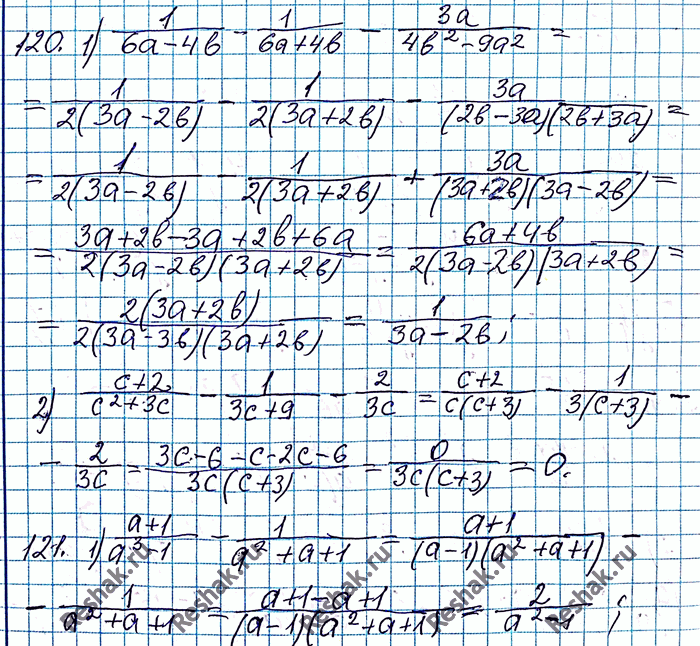 120. 1) 1/(6a-4в) - 1/(6a+4в) - 3a/(4в²-9a²) =
= 1/(2(3a-2в)) - 1/(2(3a+2в)) - 3a/((2в-3a)(2в+3a)) =
= 1/(2(3a-2в)) - 1/(2(3a+2в)) + 3a/((3a+2в)(3a-2в)) =
= (3a+2в-3a+2в+6a)/(2(3a-2в)(3a+2в)) = (6a+4в)/(2(3a-2в)(3a+2в)) =
= 2(3a+2в)/(2(3a-3в)(3a+2в)) = 1/(3a-2в);
2) (c+2)/(c²+3c) - 1/(3c+9) - 2/(3c) = (c+2)/(c(c+3)) - 1/(3(c+3)) -
- 2/(3c) = (3c-6-c-2c-6)/(3c(c+3)) = 0/(3c(c+3)) = 0.
121. 1) (a+1)/(a³-1) - 1/(a²+a+1) = (a+1)/((a-1)(a²+a+1)) -
- 1/(a²+a+1) = (a+1-a+1)/((a-1)(a²+a+1)) = 2/(a²-1);
Reshak.ru Reshak.ru Reshak.ru Reshak.ru Reshak.ru